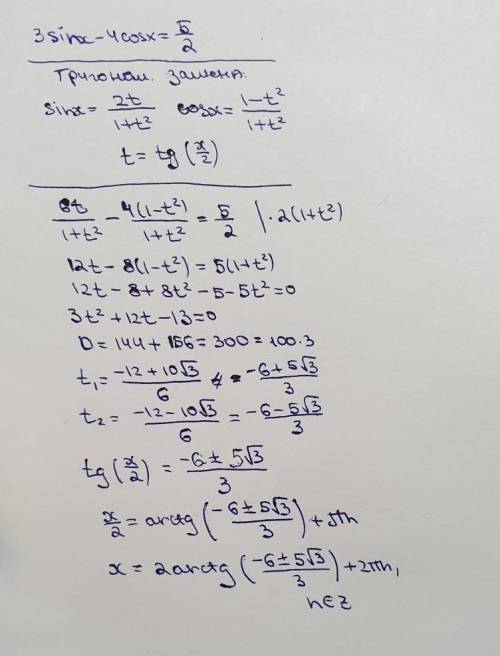 3sinx - 4cosx = 5/2
Тригоном. замена:
sinx = 2t/(1+t²) cosx = (1-t²)/(1+t²)
t = tg(x/2)
6t/(1+t²) - 4(1-t²)/(1+t²) = 5/2 | · 2(1+t²)
12t - 8(1-t²) = 5(1+t²)
12t - 8 + 8t² - 5 - 5t² = 0
3t² + 12t - 13 = 0
D = 144 + 156 = 300 = 100 · 3
t₁ = (-12 + 10√3)/6 = (-6 + 5√3)/3
t₂ = (-12 - 10√3)/6 = (-6 - 5√3)/3
tg(x/2) = (-6 ± 5√3)/3
x/2 = arctg((-6 ± 5√3)/3) + πn
x = 2arctg((-6 ± 5√3)/3) + 2πn,
n∈Z